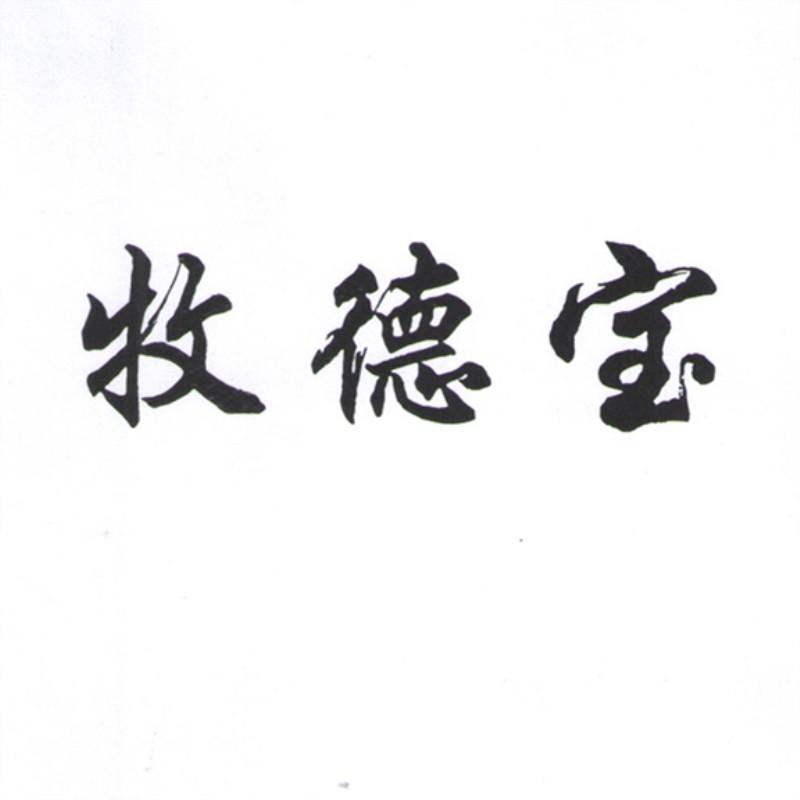 牧德宝